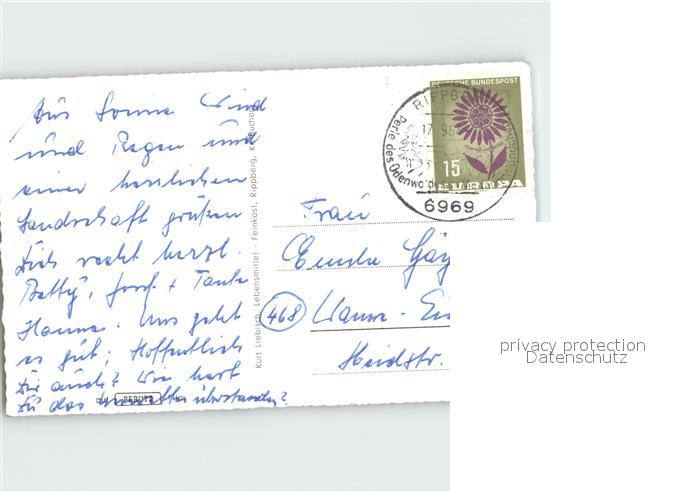 Aus Sonne Wind
und Regen und
einer herrlichen
Landschaft grüßen
Dich recht herzl.
Betty, Josef + Tante
Hanna. Uns geht
es gut; Hoffentlich
Dir auch? Wie hast
Du das überstanden?
Kurt Liebisch, Lebensmittel - Feinkost, Rippberg, Kr. Buchen
DEUTSCHE BUNDESPOST
15
EUROPA
RIPPB
Perle des Odenwaldes
6969
Frau
(468) Wanne-Ei
Heidstr.
privacy protection
Datenschutz